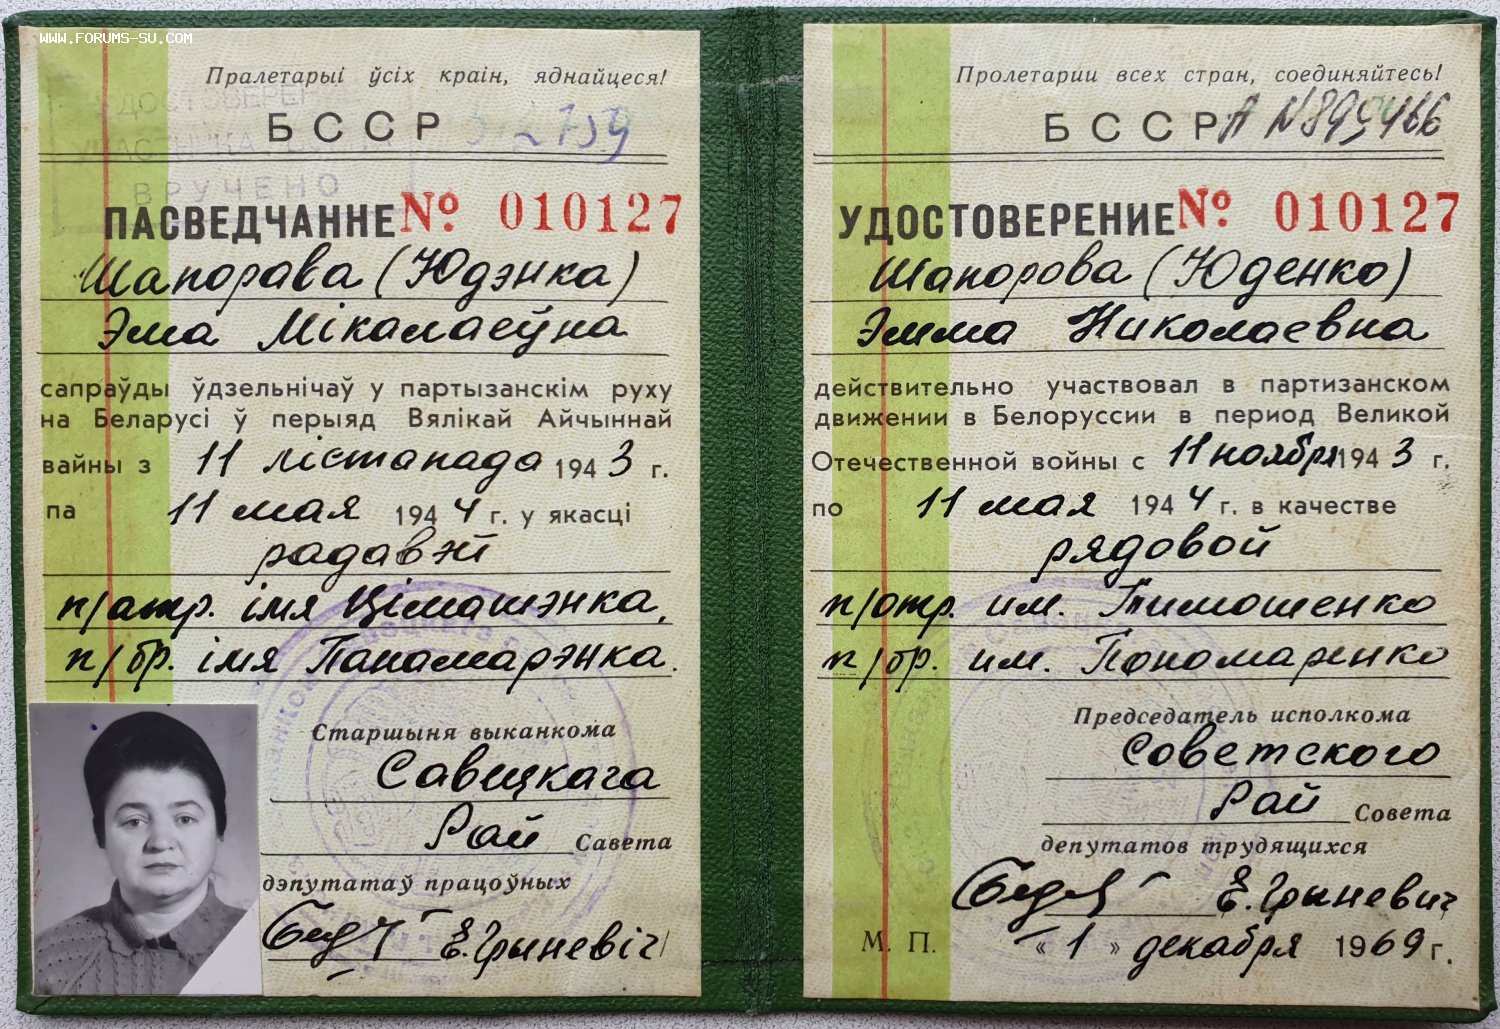 WWW.FORUMS-SU.COM
Пралетарыі ўсіх краін, яднайцеся!
БССР
УДОСТОВЕРЕНИЕ
УЧАСТНИКА
ВРУЧЕНО
ПАСВЕДЧАННЕ № 010127
Шапорава (Юдэнка)
Эма Мікалаеўна
сапраўды ўдзельнічаў у партызанскім руху
на Беларусі ў перыяд Вялікай Айчыннай
вайны з 11 лістапада 1943 г.
па 11 мая 1944 г. у якасці
радавэй
п/атр. імя Цімашэнка,
п/бр. імя Панамарэнка.
Старшыня выканкома
Савецкага
Рай Савета
дэпутатаў працоўных
Е. Грыневіч
Пролетарии всех стран, соединяйтесь!
БССР А №895466
УДОСТОВЕРЕНИЕ № 010127
Шапорова (Юденко)
Эмма Николаевна
действительно участвовал в партизанском
движении в Белоруссии в период Великой
Отечественной войны с 11 ноября 1943 г.
по 11 мая 1944 г. в качестве
рядовой
п/отр. им. Тимошенко
п/бр. им. Пономаренко
Председатель исполкома
Советского
Рай Совета
депутатов трудящихся
Е. Грыневич
М. П. "1" декабря 1969 г.